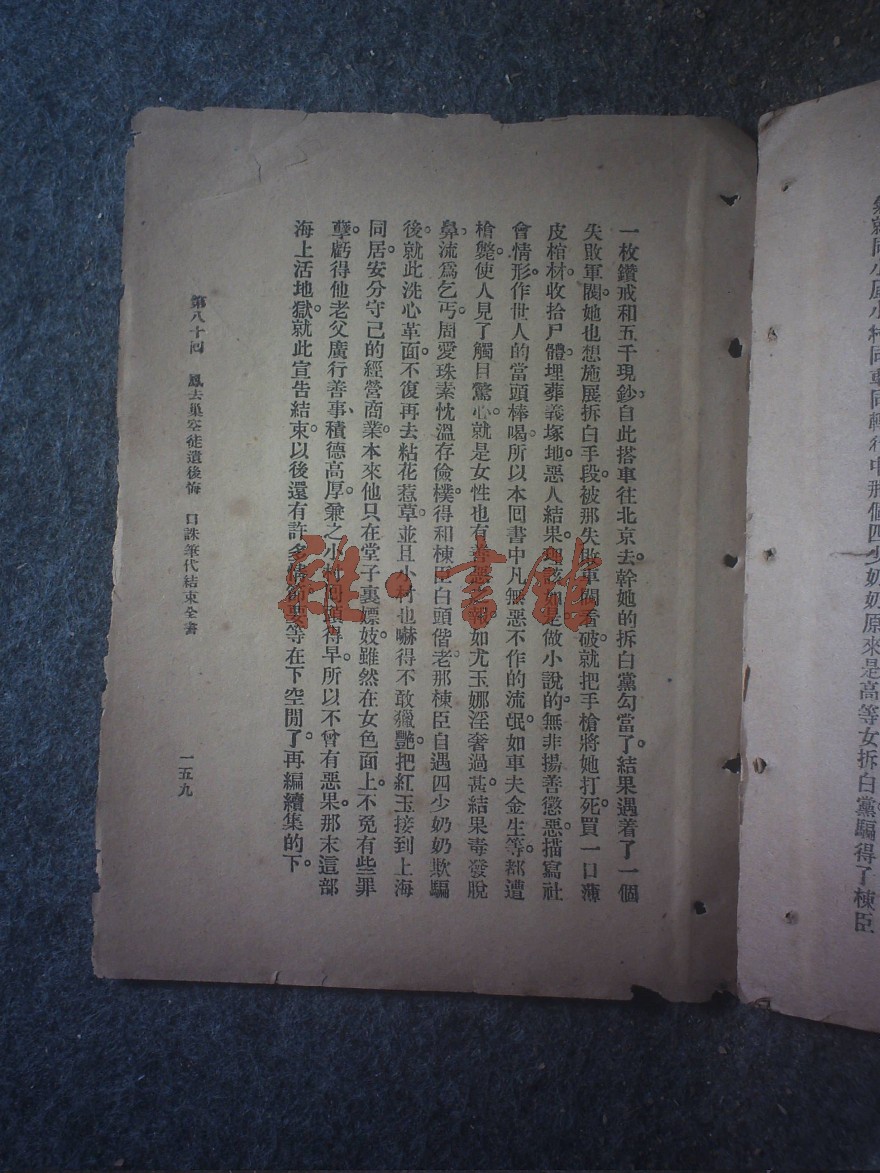 就同小居小村同車同轉行中那個四少奶奶原來是高等女拆白黨騙得了棟臣
一枚鑽戒和五千現鈔。自此搭車往北京去。幹她的拆白黨勾當了。結果遇着了一個
失敗軍閥。她也想施展拆白手段。被那失敗軍閥看破。就把手槍將她打死。買一口薄
皮棺材。收拾尸體。埋葬義塚地。惡人結果。理該如是。做小說的。無非揚善懲惡。描寫社
會情形。作世人的當頭棒喝。所以本回書中。凡無惡不作的流氓。如車夫金生等。都遭
槍斃。使人見了觸目驚心。就是女性也有善惡之報。如尤玉娜淫奢過甚。結果毒發脫
鼻。流爲乞丐。周愛珠素忱溫存儉樸。得和棟臣白頭偕老。那棟臣自遇四少奶奶欺騙
後。就此洗心革面。不復再去粘花惹草。並且小村也嚇得不敢獵艷。把紅玉接到上海
同居。安分守已的經營商業。本來他只在堂子裏嫖妓。雖然在女色面上。不免有些罪
孽。虧得他老父廣行善事、積德高厚。兼之小村回頭得早。所以不曾有惡果。那末這部
海上活地獄。就此宣告結束。以後還有許多情節。要等在下空閒了。再編續集的下。
第八十回　鳳去巢空徒遺後悔　口誅筆代結束全書
一五九
雜·書館